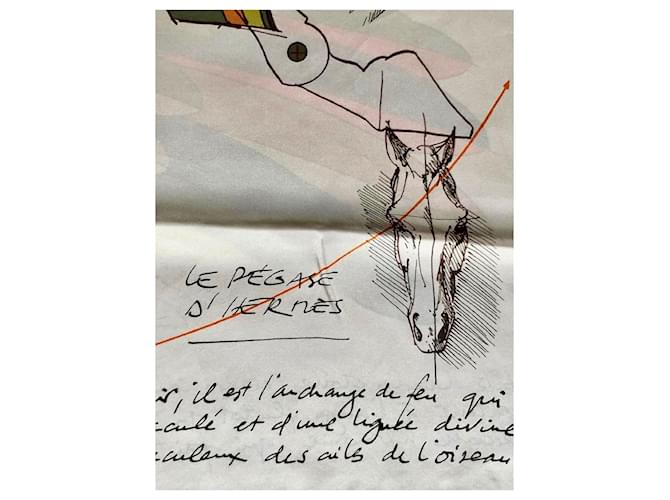 LE PÉGASE
D'HERMÈS
il est l'archange de feu qui
et d'une lignée divine
des ailes de l'oiseau